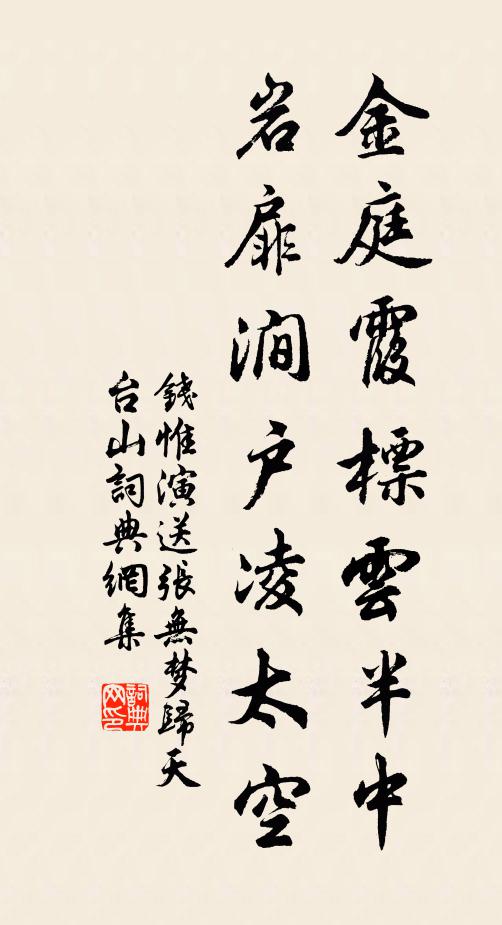 金庭霞標雲半中
岩扉澗户凌太空
錢惟演送張無梦歸天
台山詞典網集
詞典網印